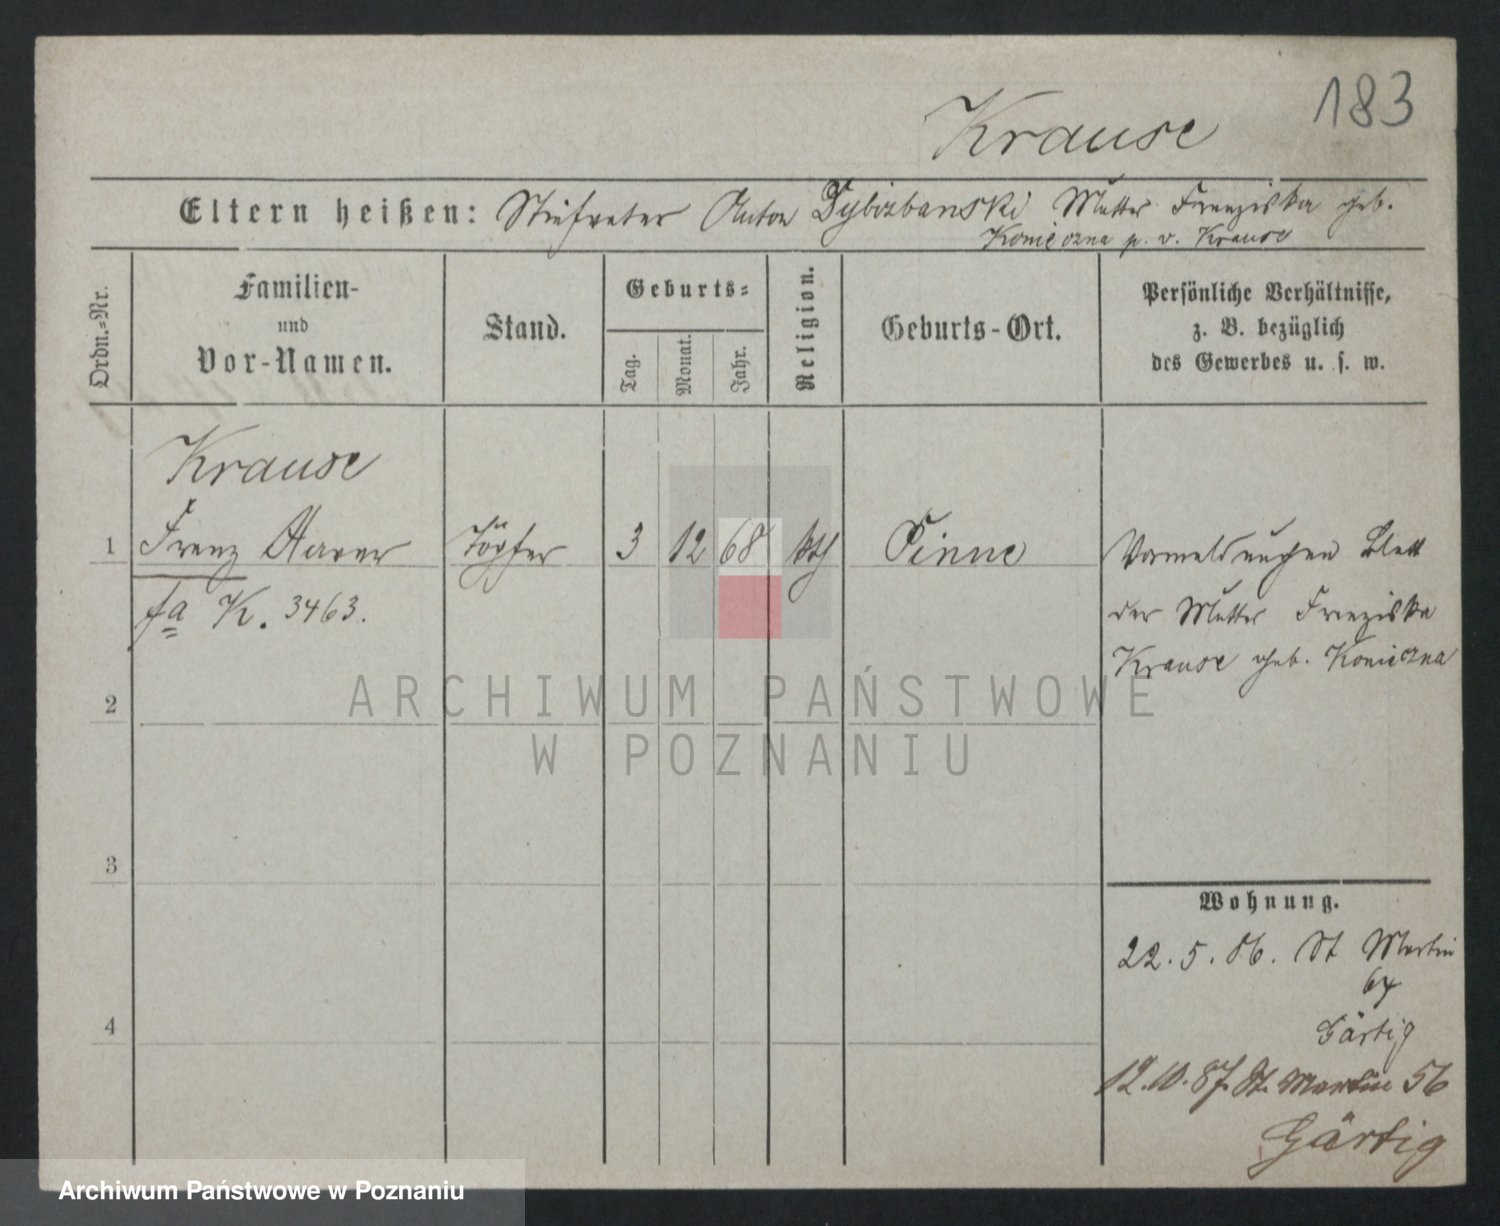 183
Krause
Eltern heißen: Stiefvater Anton Dybizbanski Mutter Franziska geb.
Konieczna p. v. Krause
Ordn.-Nr.
Familien-
und
Vor-Namen.
Stand.
Geburts-
Tag.
Monat.
Jahr.
Religion.
Geburts-Ort.
Persönliche Verhältnisse,
z. B. bezüglich
des Gewerbes u. s. w.
Krause
1 Franz Töpfer 3 12 68 kth Pinne
fa K. 3463.
Vormeldungen Blatt
der Mutter Franziska
Krause geb. Konieczna
2
3
4
Wohnung.
22. 5. 86. St Martin
Gärtig
12. 10. 87. St. Martin 56
Gärtig
ARCHIWUM PAŃSTWOWE
W POZNANIU
Archiwum Państwowe w Poznaniu